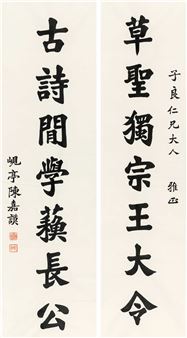 草聖獨宗王大令
子良仁兄大人 雅正
古詩間學蘓長公
峴亭陳嘉謨